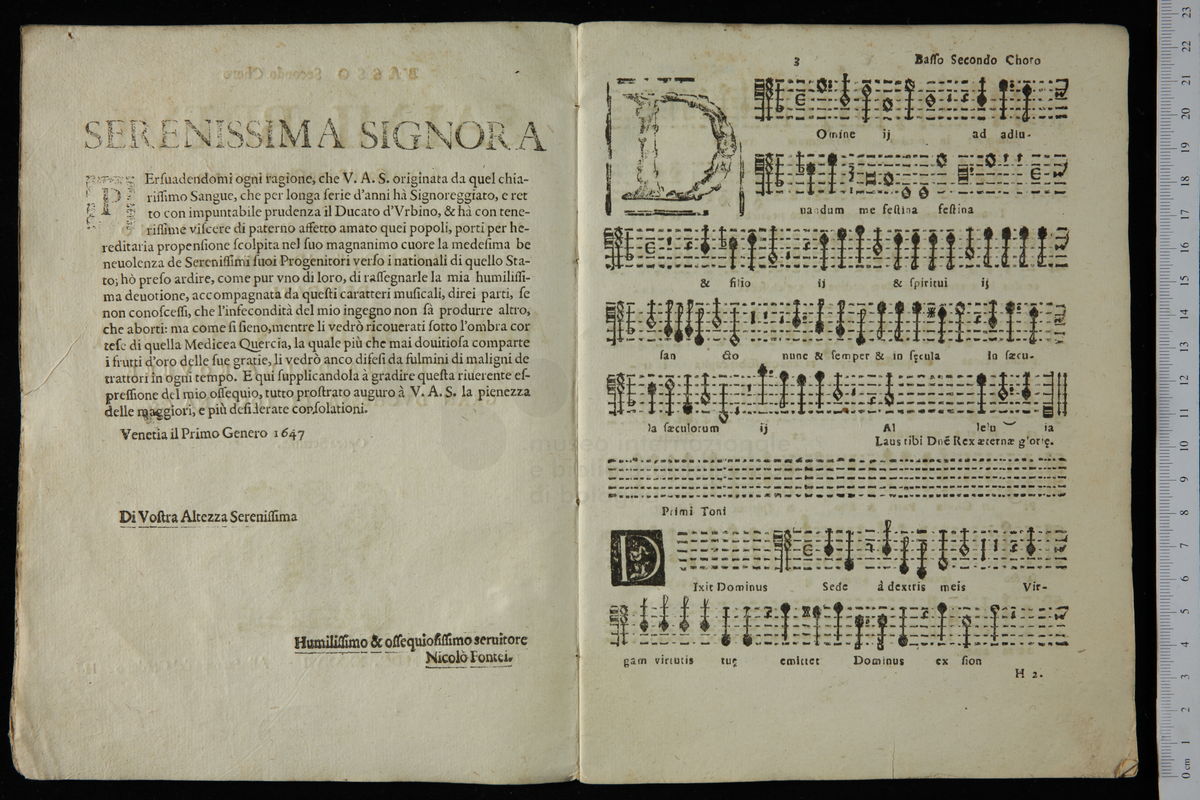 SERENISSIMA SIGNORA
PErſuadendomi ogni ragione, che V. A. S. originata da quel chia-
riſſimo Sangue, che per longa ſerie d'anni hà Signoreggiato, e ret
to con impuntabile prudenza il Ducato d'Vrbino, & hà con tene-
riſſime viſcere di paterno affetto amato quei popoli, porti per he-
reditaria propenſione ſcolpita nel ſuo magnanimo cuore la medeſima be
neuolenza de Sereniſſimi ſuoi Progenitori verſo i nationali di quello Sta-
to; hò preſo ardire, come pur vno di loro, di raſſegnarle la mia humiliſſi-
ma deuotione, accompagnata da queſti caratteri muſicali, direi parti, ſe
non conoſceſſi, che l'infecondità del mio ingegno non sà produrre altro,
che aborti: ma come ſi ſieno, mentre li vedrò ricouerati ſotto l'ombra cor
teſe di quella Medicea Quercia, la quale più che mai douitioſa comparte
i frutti d'oro delle ſue gratie, li vedrò anco difeſi da fulmini di maligni de
trattori in ogni tempo. E qui ſupplicandola à gradire queſta riuerente eſ-
preſſione del mio oſſequio, tutto proſtrato auguro à V. A. S. la pienezza
delle maggiori, e più deſiderate conſolationi.
Venetia il Primo Genero 1647
Di Voſtra Altezza Sereniſſima
Humiliſſimo & oſſequioſiſſimo seruitore
Nicolò Fontei.
3 Baſſo Secondo Choro
DOmine ij ad adiu-
uandum me feſtina feſtina
& filio ij & ſpiritui ij
ſan cto nunc & ſemper & in ſęcula In ſæcu-
la ſæculorum ij Al le'u ia
Laus tibi Dnẽ Rex æternæ g'orię.
Primi Toni
DIxit Dominus Sede à dextris meis Vir-
gam virtutis tuę emittet Dominus ex ſion
H 2.
museo internazionale
e biblio
di bolo